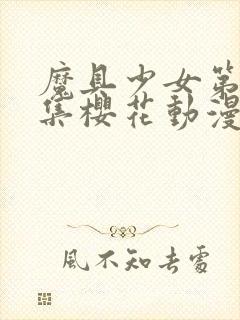 魔具少女第
集櫻花動漫
風不知去處